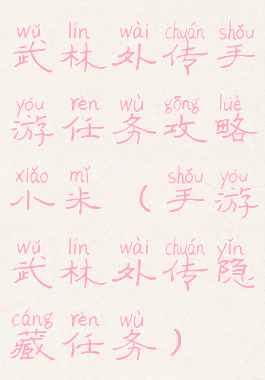 wǔ lín wài chuán shǒu
武林外传手
yóu rèn wù gōng lüè
游任务攻略
xiǎo mǐ shǒu yóu
小米（手游
wǔ lín wài chuán yǐn
武林外传隐
cáng rèn wù
藏任务）